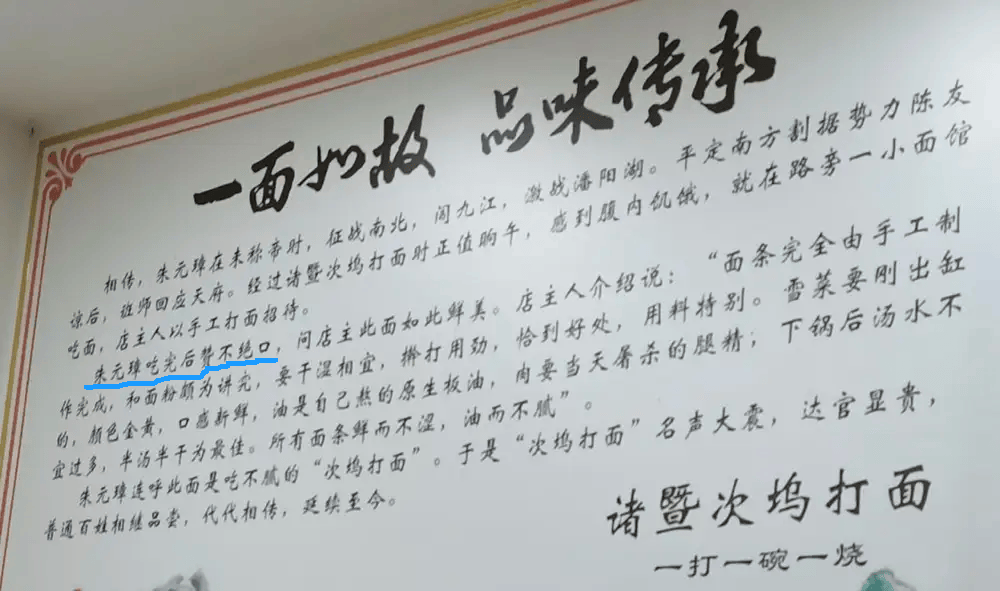 一面如故 品味传承
相传，朱元璋在未称帝时，征战南北，闯九江，激战潘阳湖。平定南方割据势力陈友
谅后，班师回应天府。经过诸暨次坞打面时正值晌午，感到腹内饥饿，就在路旁一小面馆
吃面，店主人以手工打面招待。
朱元璋吃完后赞不绝口，问店主此面如此鲜美。店主人介绍说：“面条完全由手工制
作完成，和面粉颇为讲究，要干湿相宜，擀打用劲，恰到好处，用料特别。雪菜要刚出缸
的，颜色金黄，口感新鲜，油是自己熬的原生板油，肉要当天屠杀的腿精；下锅后汤水不
宜过多，半汤半干为最佳。所有面条鲜而不涩，油而不腻”。
朱元璋连呼此面是吃不腻的“次坞打面”。于是“次坞打面”名声大震，达官显贵，
普通百姓相继品尝，代代相传，延续至今。
诸暨次坞打面
一打一碗一烧